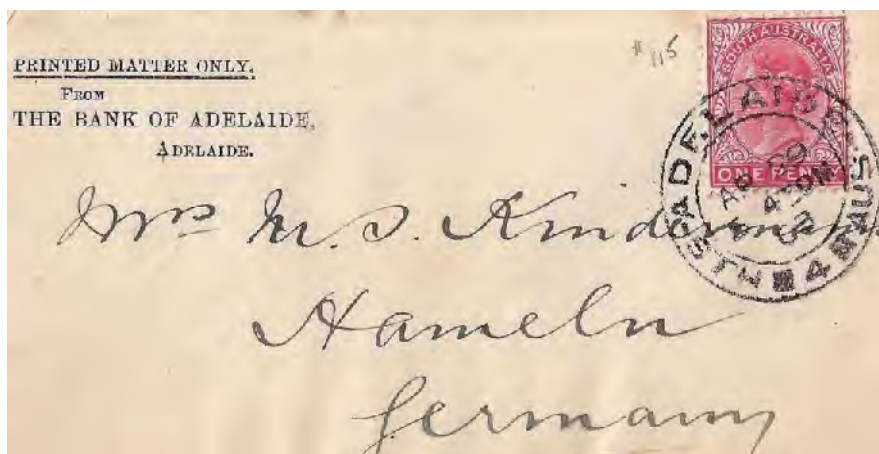 PRINTED MATTER ONLY.
FROM
THE BANK OF ADELAIDE,
ADELAIDE.
#115
SOUTH AUSTRALIA
ONE PENNY
ADELAIDE
STH AUS
4
Mrs M. S.
Hameln
Germany